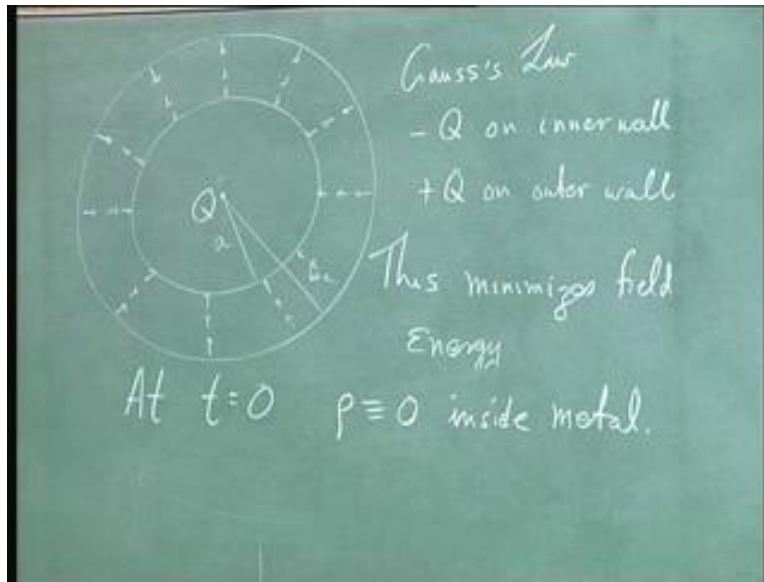 Gauss's Law
- Q on inner wall
+Q on outer wall
Q
a
This minimizes field
Energy
At t=0 ρ≡0 inside metal.